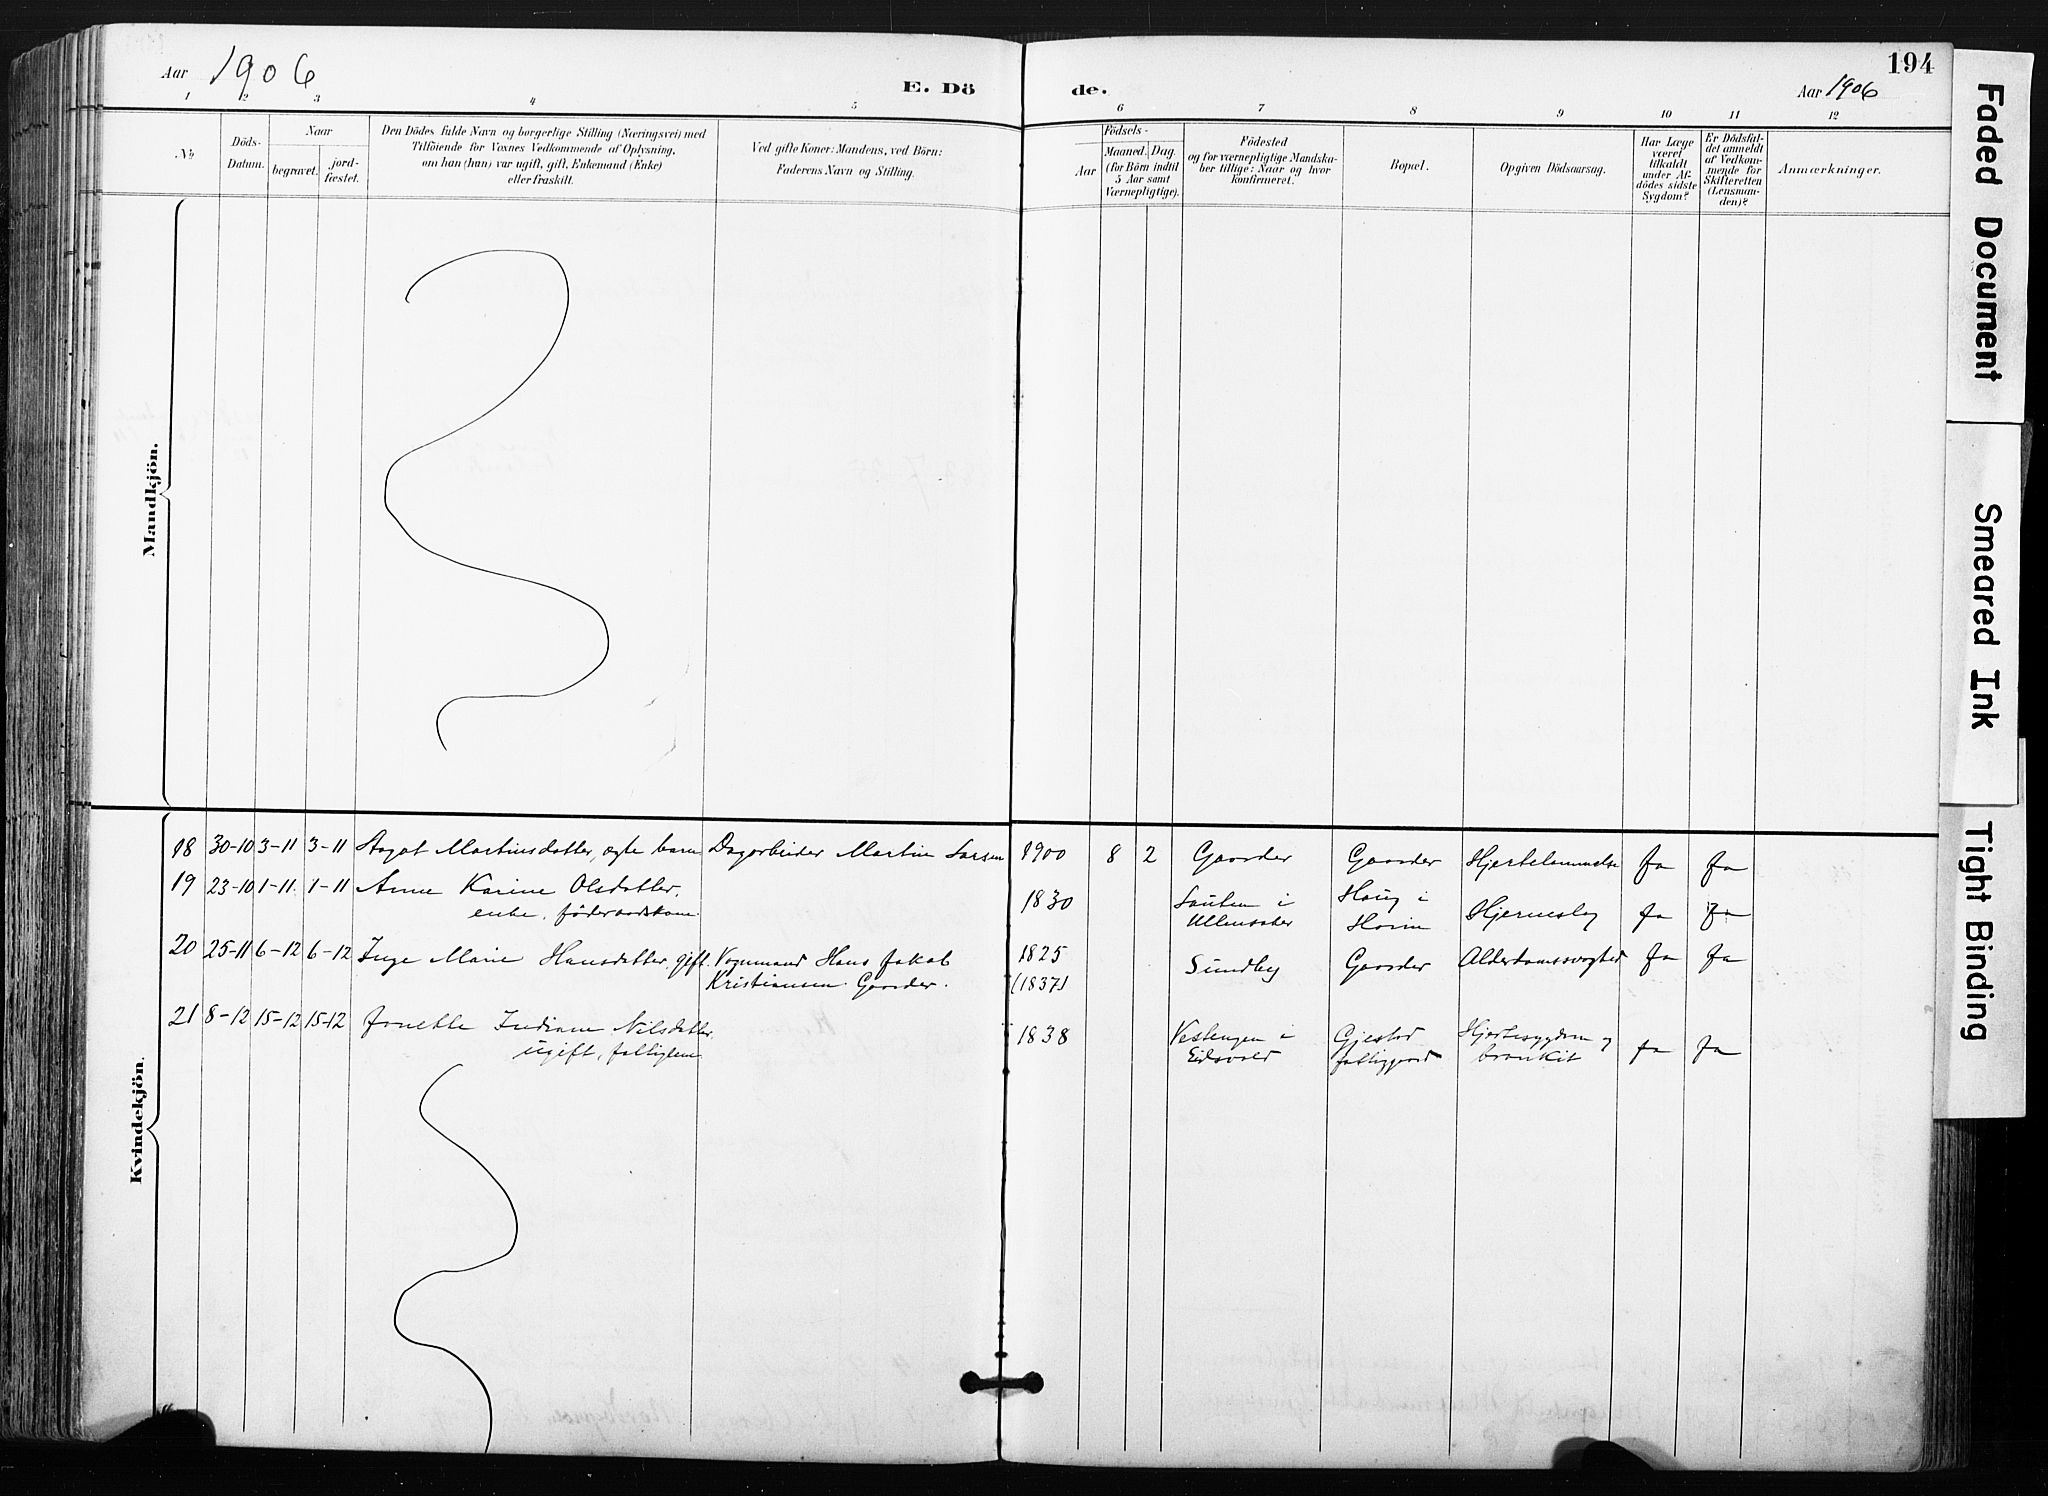 Aar 1906
E. Döde.
194
Aar 1906
1 2 3 4 5 6 7 8 9 10 11 12
No
Döds-Datum.
Naar
begravet.
jord-fæstet.
Den Dödes fulde Navn og borgerlige Stilling (Næringsvei) med
Tilföiende for Voxnes Vedkommende af Oplysning,
om han (hun) var ugift, gift, Enkemand (Enke)
eller fraskilt.
Ved gifte Koner: Mandens, ved Börn:
Faderens Navn og Stilling.
Födsels-
Aar
Maaned. Dag.
(for Börn indtil
5 Aar samt
Værnepligtige).
Födested
og for værnepligtige Mandska-
ber tillige: Naar og hvor
konfirmeret.
Bopæl.
Opgiven Dödsaarsag.
Har Læge
været
tilkaldt
under Af-
dödes sidste
Sygdom?
Er Dödsfal-
det anmeldt
af Vedkom-
mende for
Skifteretten
(Lensman-
den)?
Anmærkninger.
Mandkjön.
Kvindekjön.
18 30-10 3-11 3-11 Aagot Martinsdatter, ægte barn Dagarbeider Martin Larsen 1900 8 2 Gaarder Gaarder Hjertelammelse Ja Ja
19 23-10 1-11 1-11 Anne Karine Olsdatter, 1830 Sauten i Haug i
enke, föderaadskone. Ullensaker Hovin Hjerneslag Ja Ja
20 25-11 6-12 6-12 Inge Marie Hansdatter, gift. Vognmand Hans Jakob 1825 Sundby Gaarder Alderdomssvaghed Ja Ja
Kristiansen Gaarder. (1837)
21 8-12 15-12 15-12 Jonette Indiane Nilsdatter, 1838 Vestengen i Gjestad Hjertesygdom og
ugift, fattiglem Eidsvold fattiggaard bronkit Ja Ja
Faded Document
Smeared Ink
Tight Binding